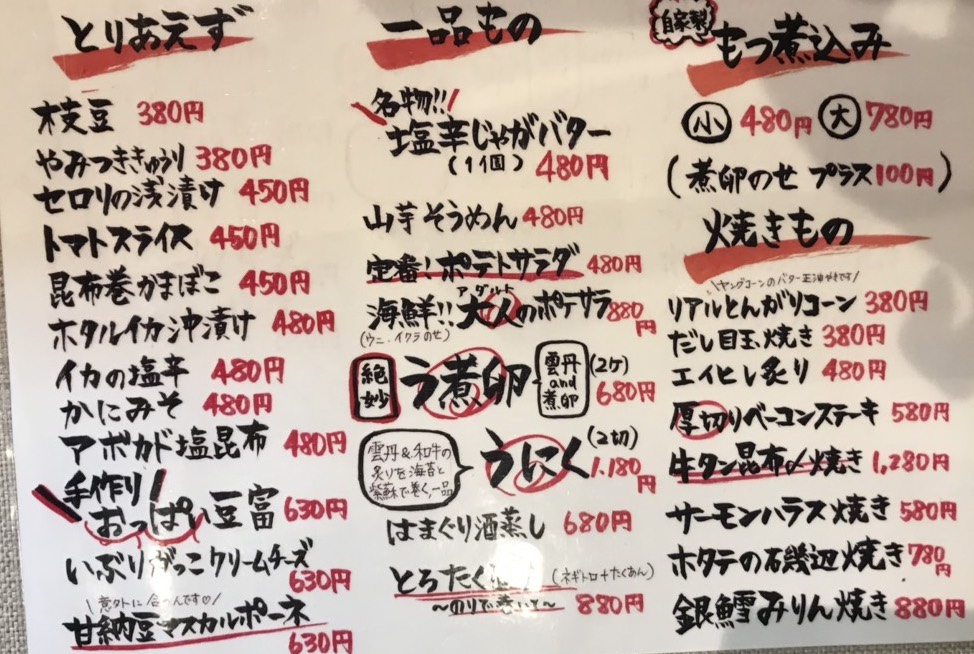 とりあえず
枝豆 380円
やみつききゅうり 380円
セロリの浅漬け 450円
トマトスライス 450円
昆布巻かまぼこ 450円
ホタルイカ沖漬け 480円
イカの塩辛 480円
かにみそ 480円
アボカド塩昆布 480円
手作り
おっぱい豆富 630円
いぶりがっこクリームチーズ
630円
意外に合うんです♡
甘納豆マスカルポーネ
630円
一品もの
名物!!
塩辛じゃがバター
(1個) 480円
山芋そうめん 480円
定番!ポテトサラダ 480円
アダルト
海鮮!!大人のポテサラ 880円
(ウニ・イクラのせ)
絶妙 う煮卵 雲丹and煮卵 (2ケ) 680円
うにく (2切) 1,180円
雲丹&和牛の
炙りを海苔と
紫蘇で巻く一品
はまぐり酒蒸し 680円
とろたく (ネギトロ+たくあん)
~のりで巻いて~ 880円
自家製
もつ煮込み
小 480円 大 780円
(煮卵のせ プラス100円)
焼きもの
ヤングコーンのバター正油やきです
リアルとんがりコーン 380円
だし目玉焼き 380円
エイヒレ炙り 480円
厚切りベーコンステーキ 580円
牛タン昆布〆焼き 1,280円
サーモンハラス焼き 580円
ホタテの石幾辺焼き 780円
銀鱈みりん焼き 880円